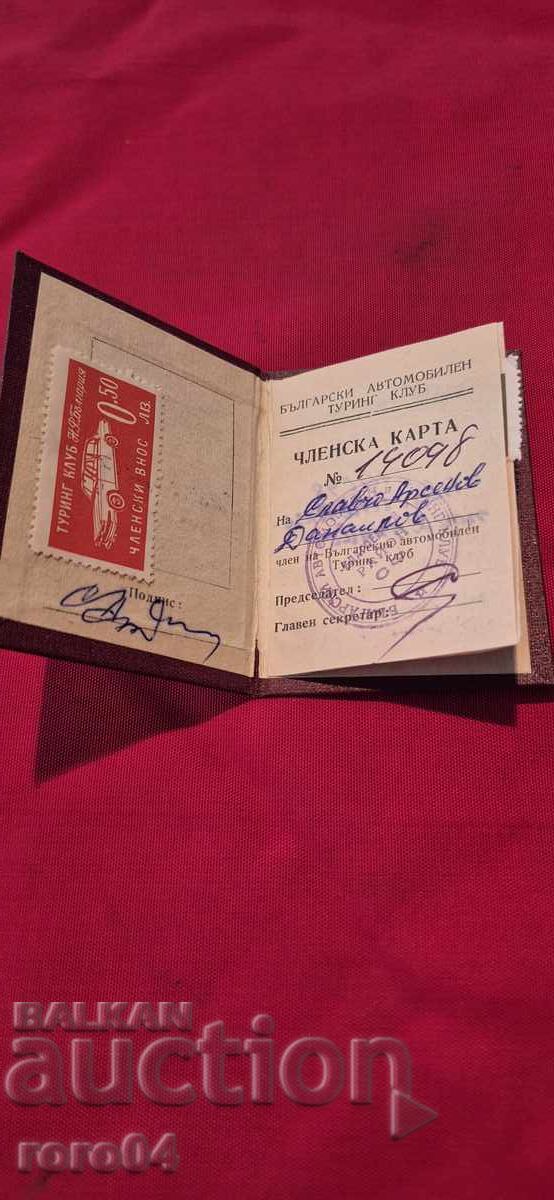 ТУРИНГ КЛУБ Н.Р.България
0.50
ЧЛЕНСКИ ВНОС ЛВ.
Подпис:
БЪЛГАРСКИ АВТОМОБИЛЕН
ТУРИНГ КЛУБ
ЧЛЕНСКА КАРТА
№ 14098
На Славчо Арсенов
Данаилов
член на Българския автомобилен
Туринг клуб
Председател:
Главен секретар:
BALKAN
auction
roro04